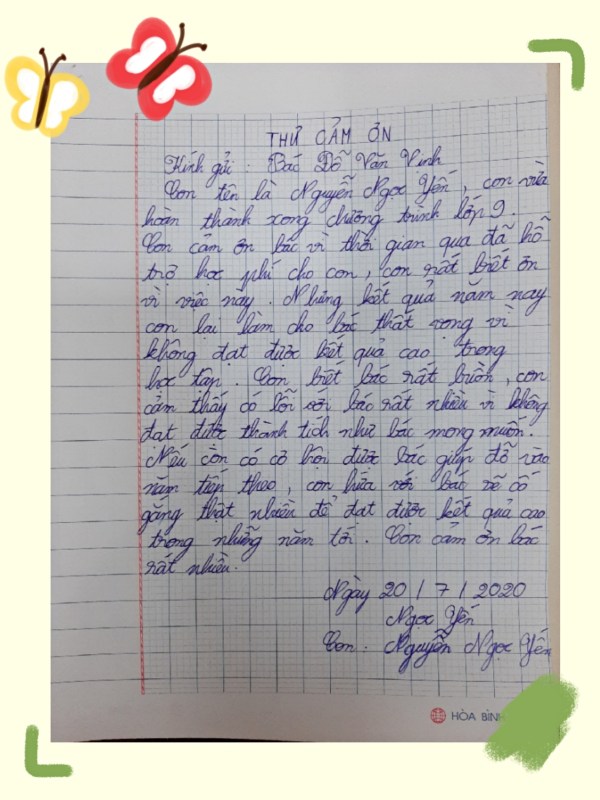 THƯ CẢM ƠN
Kính gửi : Bác Đỗ Văn Vịnh
Con tên là Nguyễn Ngọc Yến , con vừa
hoàn thành xong chương trình lớp 9.
Con cảm ơn bác vì thời gian qua đã hỗ
trợ học phí cho con , con rất biết ơn
vì việc này . Nhưng kết quả năm nay
con lại làm cho bác thất vọng vì
không đạt được kết quả cao trong
học tập . Con biết bác rất buồn , con
cảm thấy có lỗi với bác rất nhiều vì không
đạt được thành tích như bác mong muốn.
Nếu còn có cơ hội được bác giúp đỡ vào
năm tiếp theo , con hứa với bác sẽ cố
gắng thật nhiều để đạt được kết quả cao
trong những năm tới . Con cảm ơn bác
rất nhiều.
Ngày 20 / 7 / 2020
Ngọc Yến
Con : Nguyễn Ngọc Yến
HÒA BÌNH